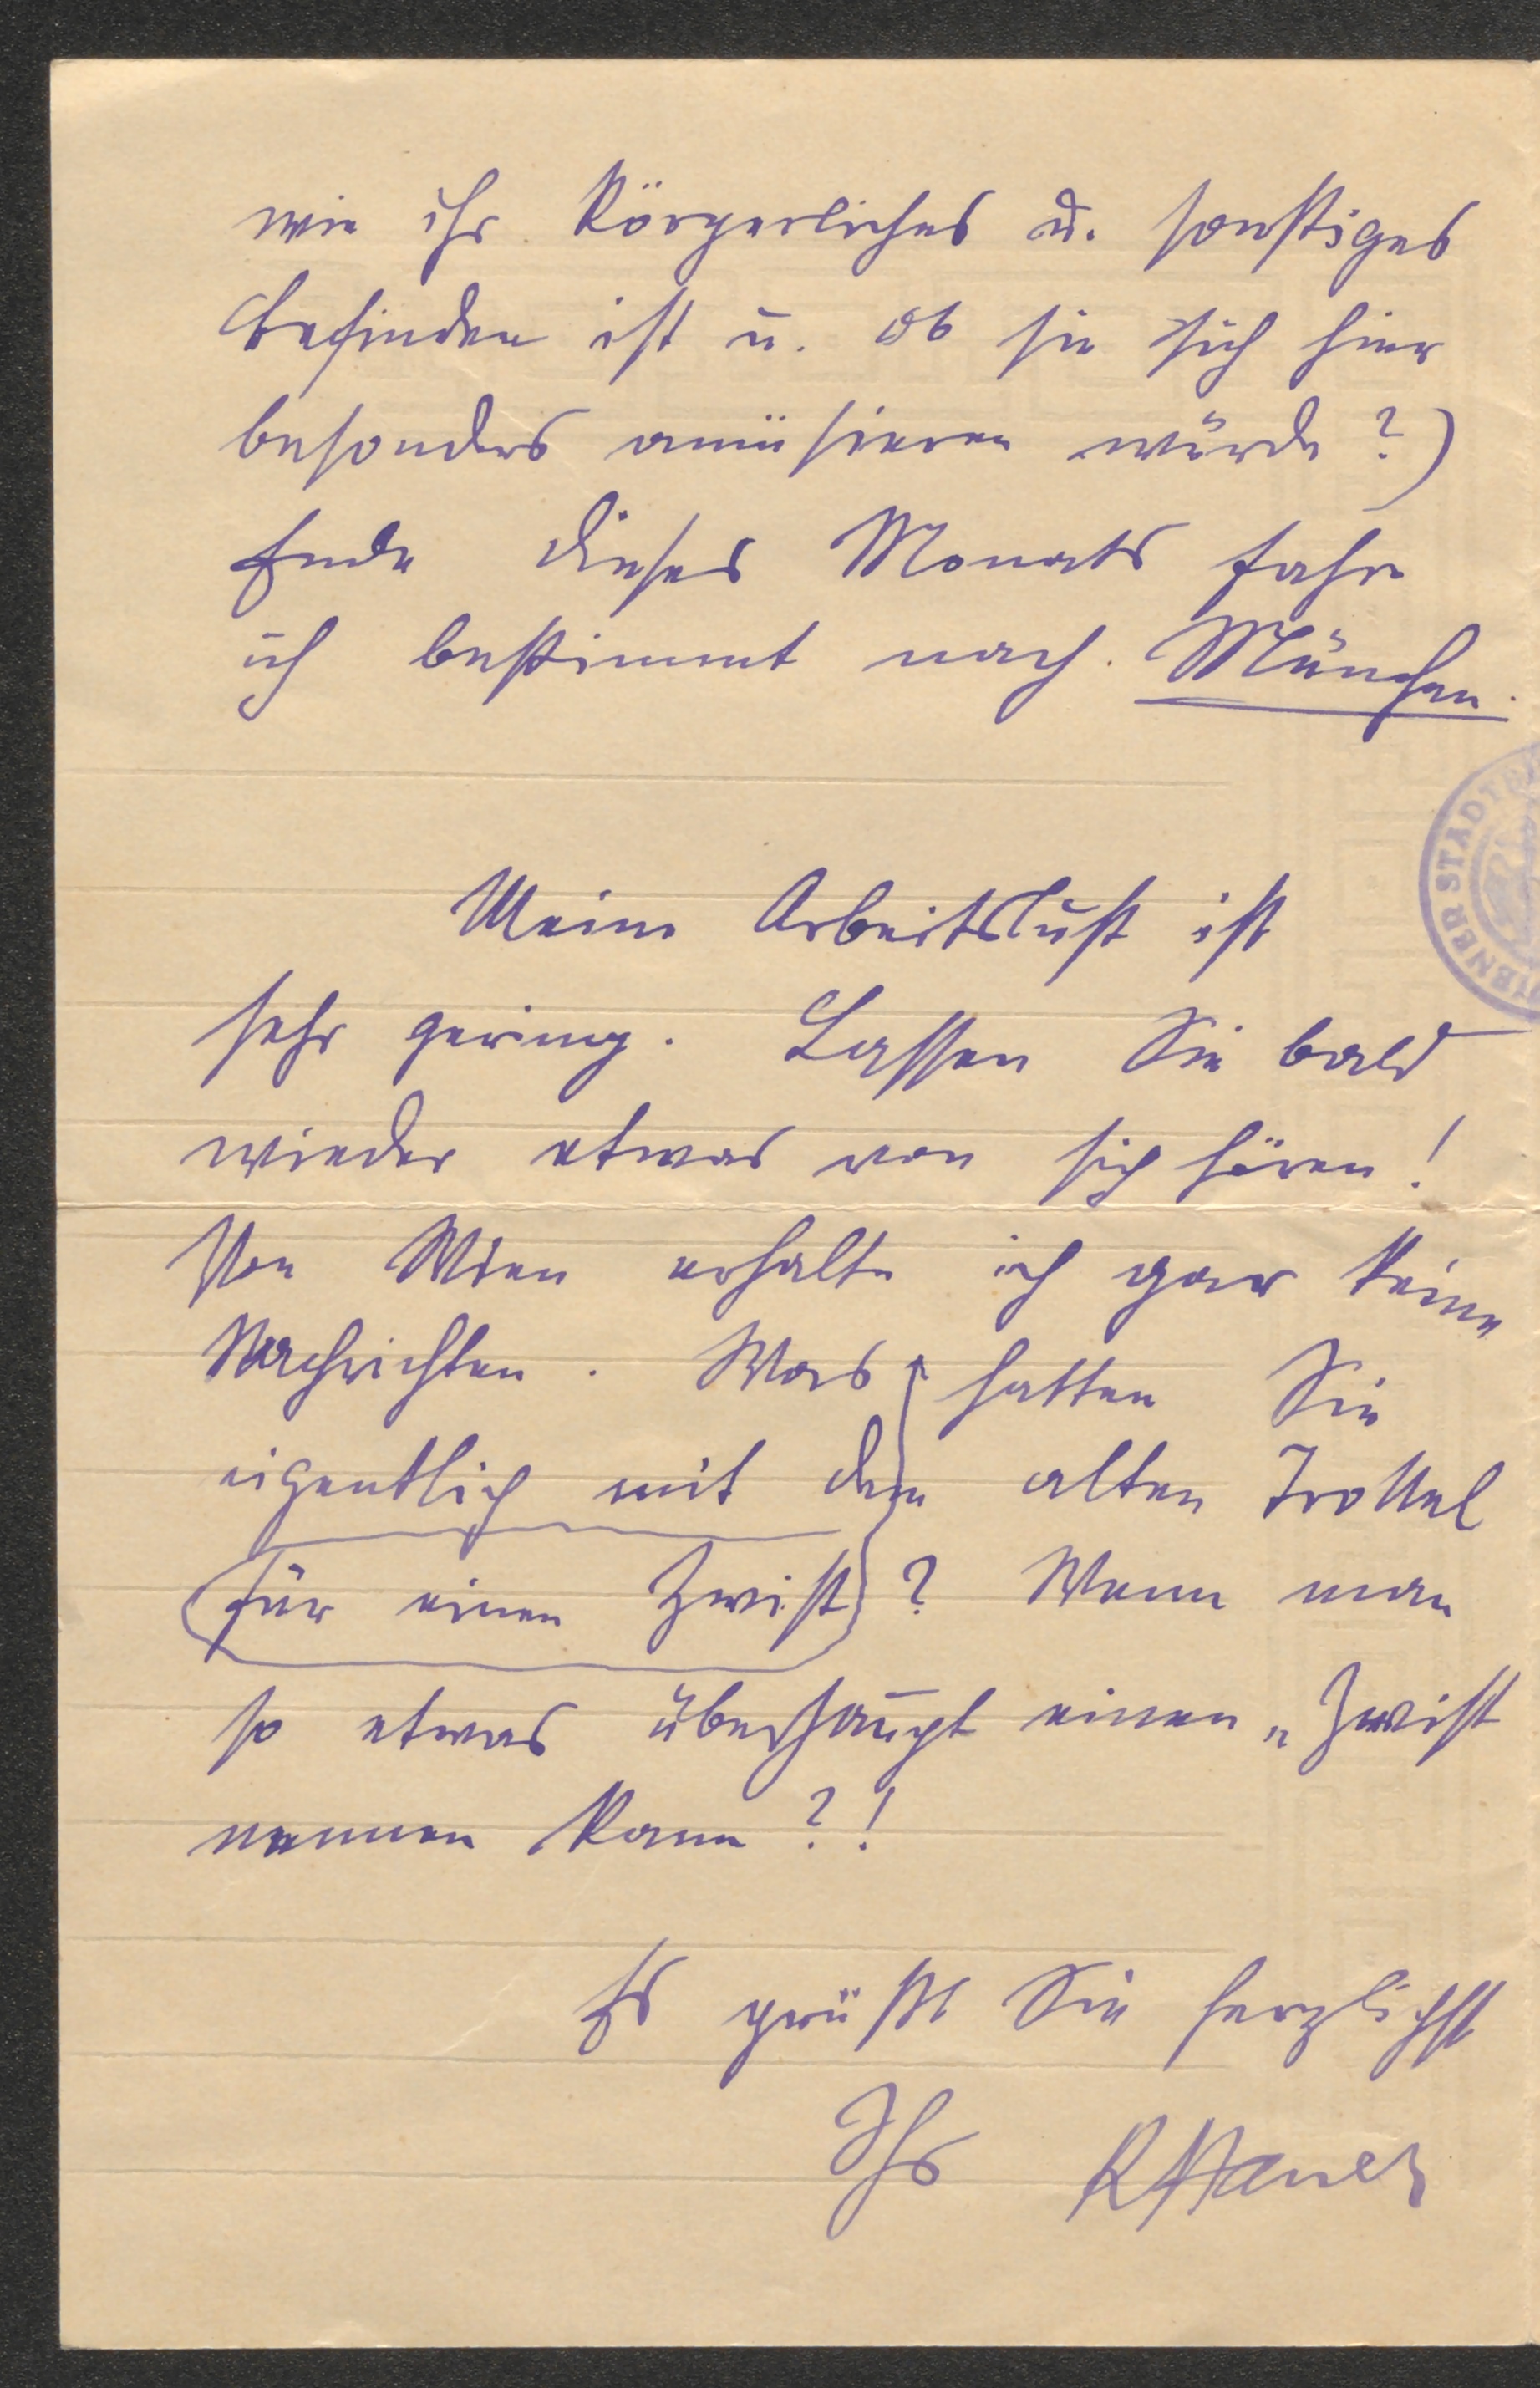 wie ihr körperliches u. sonstiges
Befinden ist u. ob sie sich hier
besonders amüsieren würde?)
Ende dieses Monats fahre
ich bestimmt nach München.
Meine Arbeitslust ist
sehr gering. Lassen Sie bald
wieder etwas von sich hören!
Von Wien erhalte ich gar keine
Nachrichten. Was hatten Sie
eigentlich mit dem alten Trottel
für einen Zwist? Wenn man
so etwas überhaupt einen „Zwist
nennen kann?!
Es grüßt Sie herzlichst
Ihr